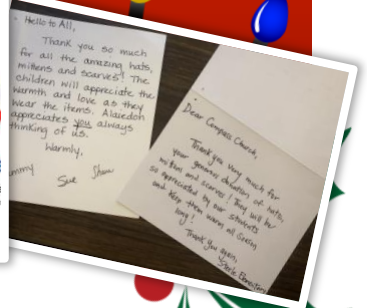 Hello to All,
Thank you so much
for all the amazing hats,
mittens and scarves! The
children will appreciate the
warmth and love as they
wear the items. Alaiedon
appreciates you always
thinking of us.
Warmly,
Sue
Dear Compass Church,
Thank you very much for
your generous donation of hats,
mittens and scarves! They will be
so appreciated by our students
and keep them warm all
long!
Thank you again,